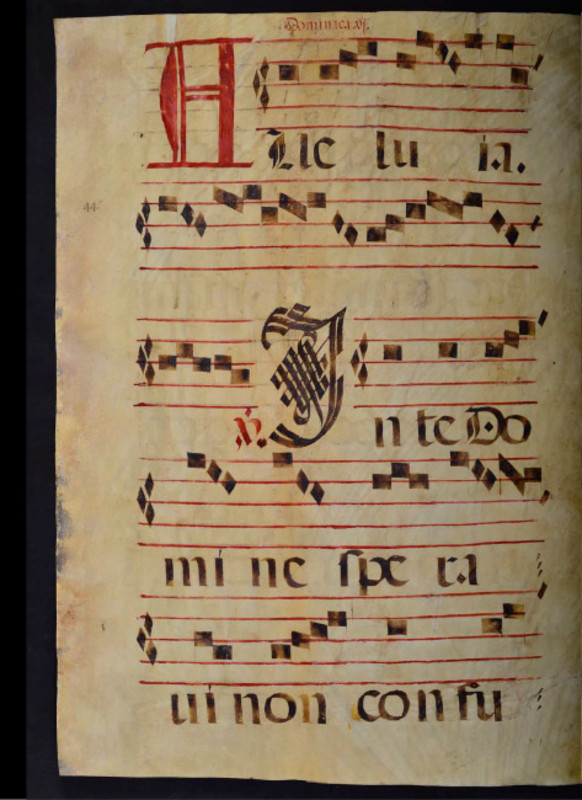 Dominica .vj.
ALle lu ia.
44
℣. In te Do
mi ne spe ra
ui non con fu